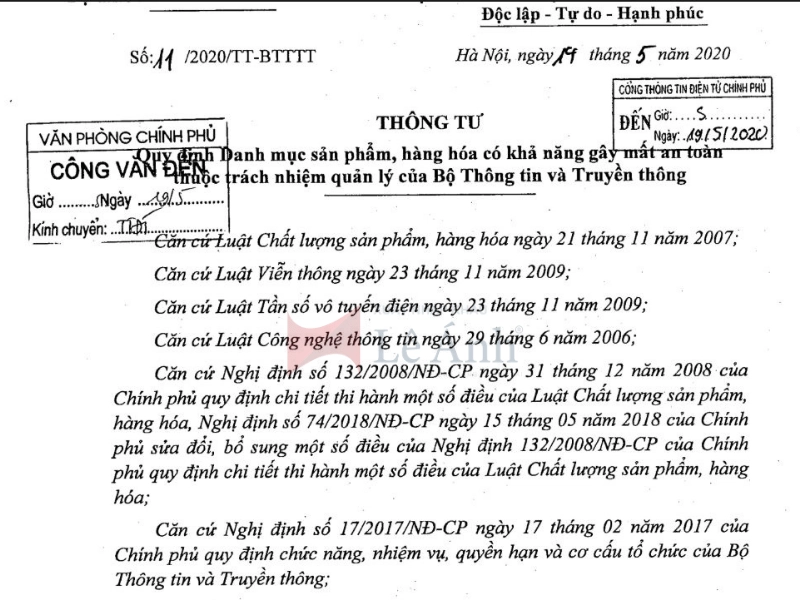 Độc lập - Tự do - Hạnh phúc
Số: 11 /2020/TT-BTTTT
Hà Nội, ngày 14 tháng 5 năm 2020
CỔNG THÔNG TIN ĐIỆN TỬ CHÍNH PHỦ
ĐẾN Giờ: ....S........
Ngày: .19/5/2020
THÔNG TƯ
VĂN PHÒNG CHÍNH PHỦ
CÔNG VĂN ĐẾN
Giờ .........Ngày ...19/5......
Kính chuyển:
Quy định Danh mục sản phẩm, hàng hóa có khả năng gây mất an toàn
thuộc trách nhiệm quản lý của Bộ Thông tin và Truyền thông
Căn cứ Luật Chất lượng sản phẩm, hàng hóa ngày 21 tháng 11 năm 2007;
Căn cứ Luật Viễn thông ngày 23 tháng 11 năm 2009;
Căn cứ Luật Tần số vô tuyến điện ngày 23 tháng 11 năm 2009;
Căn cứ Luật Công nghệ thông tin ngày 29 tháng 6 năm 2006;
Lê Ánh®
Căn cứ Nghị định số 132/2008/NĐ-CP ngày 31 tháng 12 năm 2008 của
Chính phủ quy định chi tiết thi hành một số điều của Luật Chất lượng sản phẩm,
hàng hóa, Nghị định số 74/2018/NĐ-CP ngày 15 tháng 05 năm 2018 của Chính
phủ sửa đổi, bổ sung một số điều của Nghị định 132/2008/NĐ-CP của Chính
phủ quy định chi tiết thi hành một số điều của Luật Chất lượng sản phẩm, hàng
hóa;
Căn cứ Nghị định số 17/2017/NĐ-CP ngày 17 tháng 02 năm 2017 của
Chính phủ quy định chức năng, nhiệm vụ, quyền hạn và cơ cấu tổ chức của Bộ
Thông tin và Truyền thông;